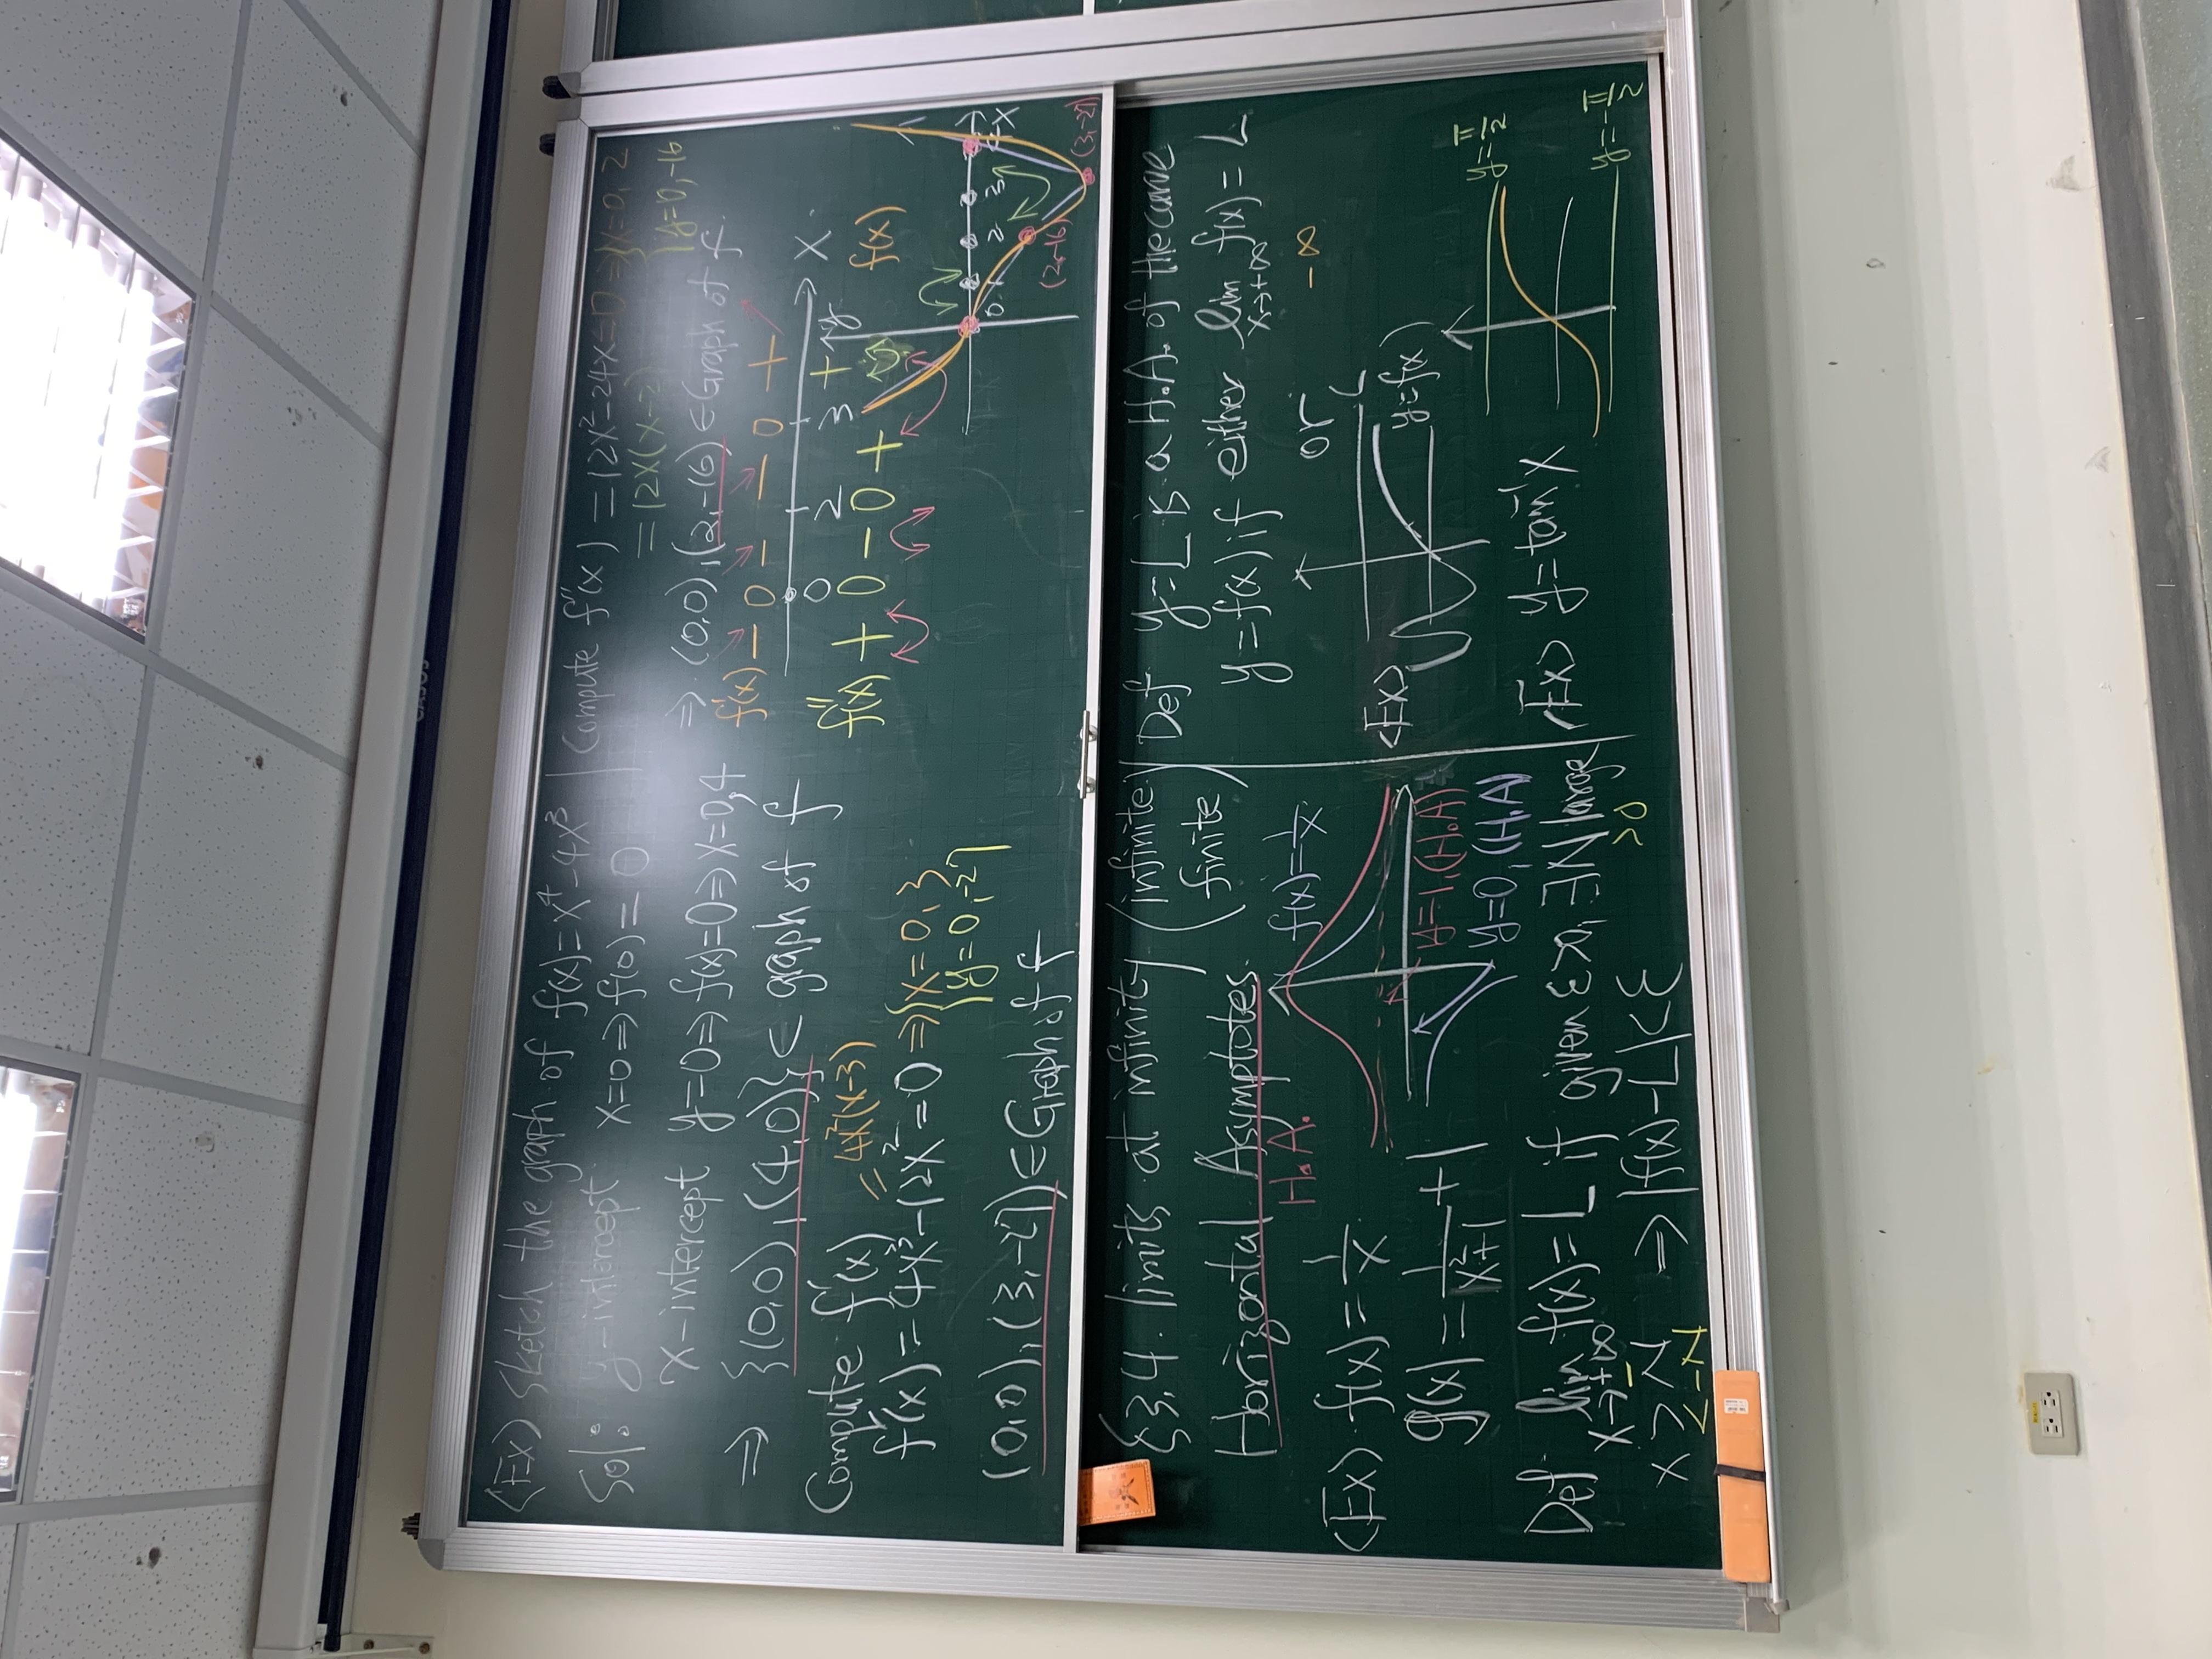 <Ex> Sketch the graph of f(x)=x⁴-4x³
Sol: y-intercept x=0⇒f(0)=0
x-intercept y=0⇒f(x)=0⇒x=0,4
⇒ {(0,0),(4,0)}⊂ graph of f
Compute f'(x)
=4x²(x-3)
f'(x)=4x³-12x²=0⇒{x=0,3
y=0,-27
(0,0),(3,-27)∈Graph of f
Compute f''(x)=12x²-24x=0⇒{x=0,2
=12x(x-2)
y=0,-16
⇒(0,0),(2,-16)∈Graph of f.
f'(x) - 0 - - 0 +
0 2 3 x
f''(x) + 0 - 0 + +
y
f(x)
0 1 2 3 x
(2,-16)
(3,-27)
§3.4. limits at infinity (infinite
finite)
Horizontal Asymptotes
H.A.
<Ex> f(x)=1/x
f(x)=1/x
g(x)=1/(x²+1)+1
y=1,(H.A)
y=0,(H.A)
Def lim f(x)=L if given ε>0, ∃N large
x→±∞
>0
x>N ⇒|f(x)-L|<ε
<-N
Def y=L is a H.A. of the curve
y=f(x) if either lim f(x)=L
x→+∞
or -∞
L
<Ex>
y=f(x)
<Ex> y=tan⁻¹x
y=π/2
y=-π/2